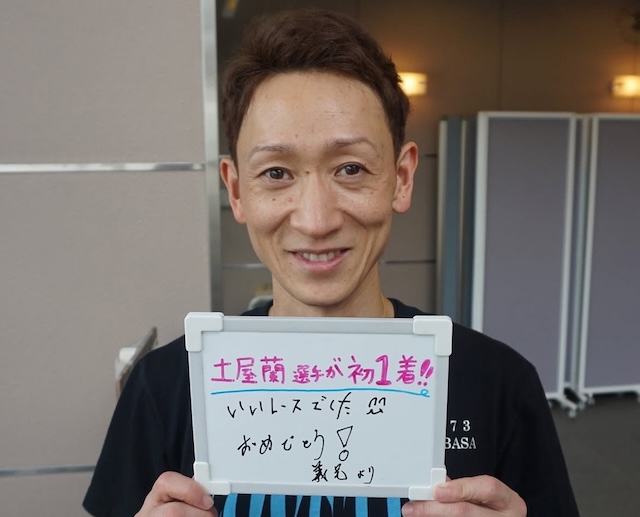 土屋蘭選手が初1着!!
いいレースでした
おめでとう!
義兄より
73
BASA